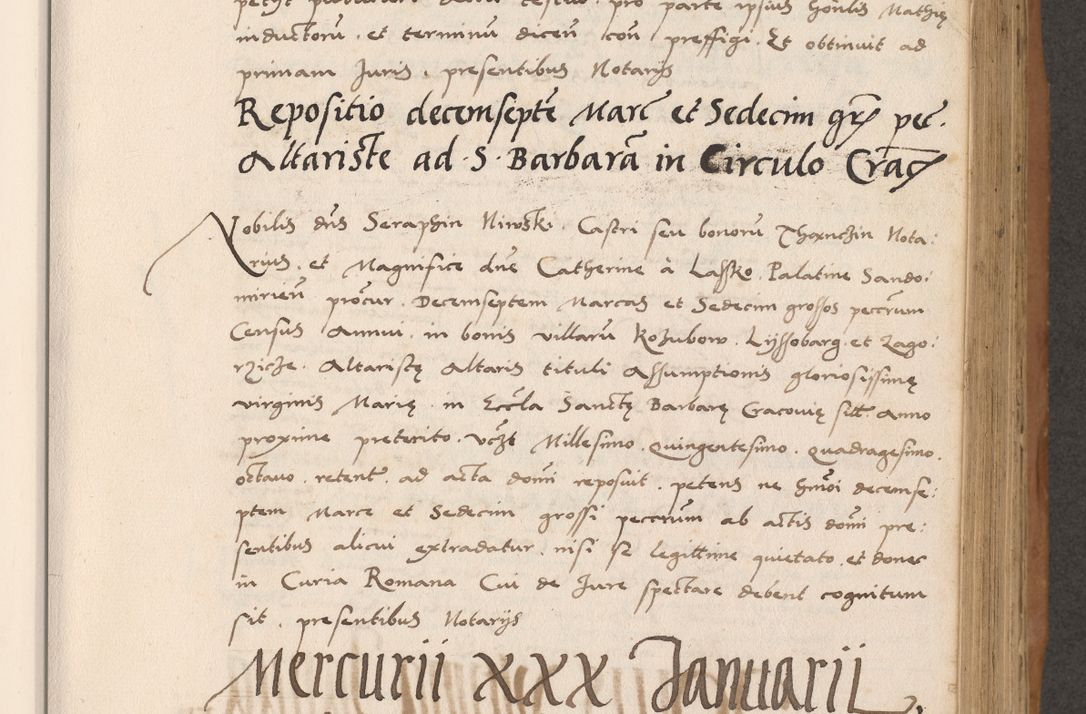 parte ipsius honlis Mathię
inductoru. et terminu dicen con preffigi. Et obtinuit ad
primam Juris. presentibus Notarijs
Repositio decemsepte Marc et Sedecim gr pec.
Altariste ad S. Barbarā in Circulo Crac
Nobilis dns Seraphin Niwski. Castri seu bonoru Thanczin Nota:
rius. et Magnifice dne Catherine à Lassko. Palatine Sando:
mirien procur. Decemseptem Marcas et Sedecim grossos peccrum
Census Annui. in bonis villaru Kozubow. Lyssobarg. et Zago:
rzicze. Altaristę Altaris tituli Assumptionis gloriosissimę
virginis Marię. in Eccla Sanctę Barbarę Cracovię sitt anno
proxime preterito. vczt Millesimo. Quingentesimo. Quadragesimo.
octavo. retent. ad acta domi reposuit. petens ne hmoi decemse:
ptem Marce et Sedecim grossi peccrum ab actis domi pre:
sentibus alicui extradatur. nisi se legittime quietato. et donec
in Curia Romana Cui de Jure spectare debent cognitum
sit. presentibus Notarijs
Mercurii XXX Januarii